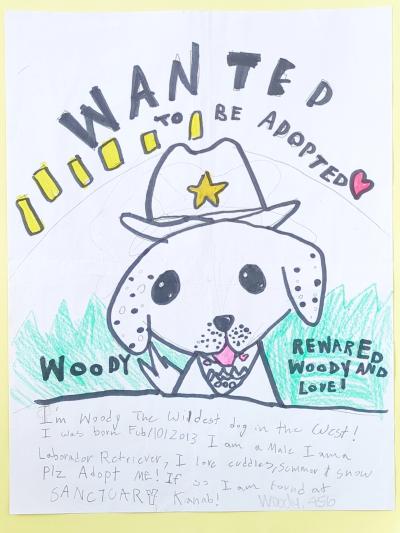 WANTED
TO BE ADOPTED
WOODY
REWARED
WOODY AND
LOVE!
I'm Woody The Wildest dog in the West!
I was born Feb/10/2013 I am a Male I am a
Laborador Retriever, I love cuddles, Summer & Snow
Plz Adopt ME! If so I am found at
SANCTUARY Kanab!
Woody, 456